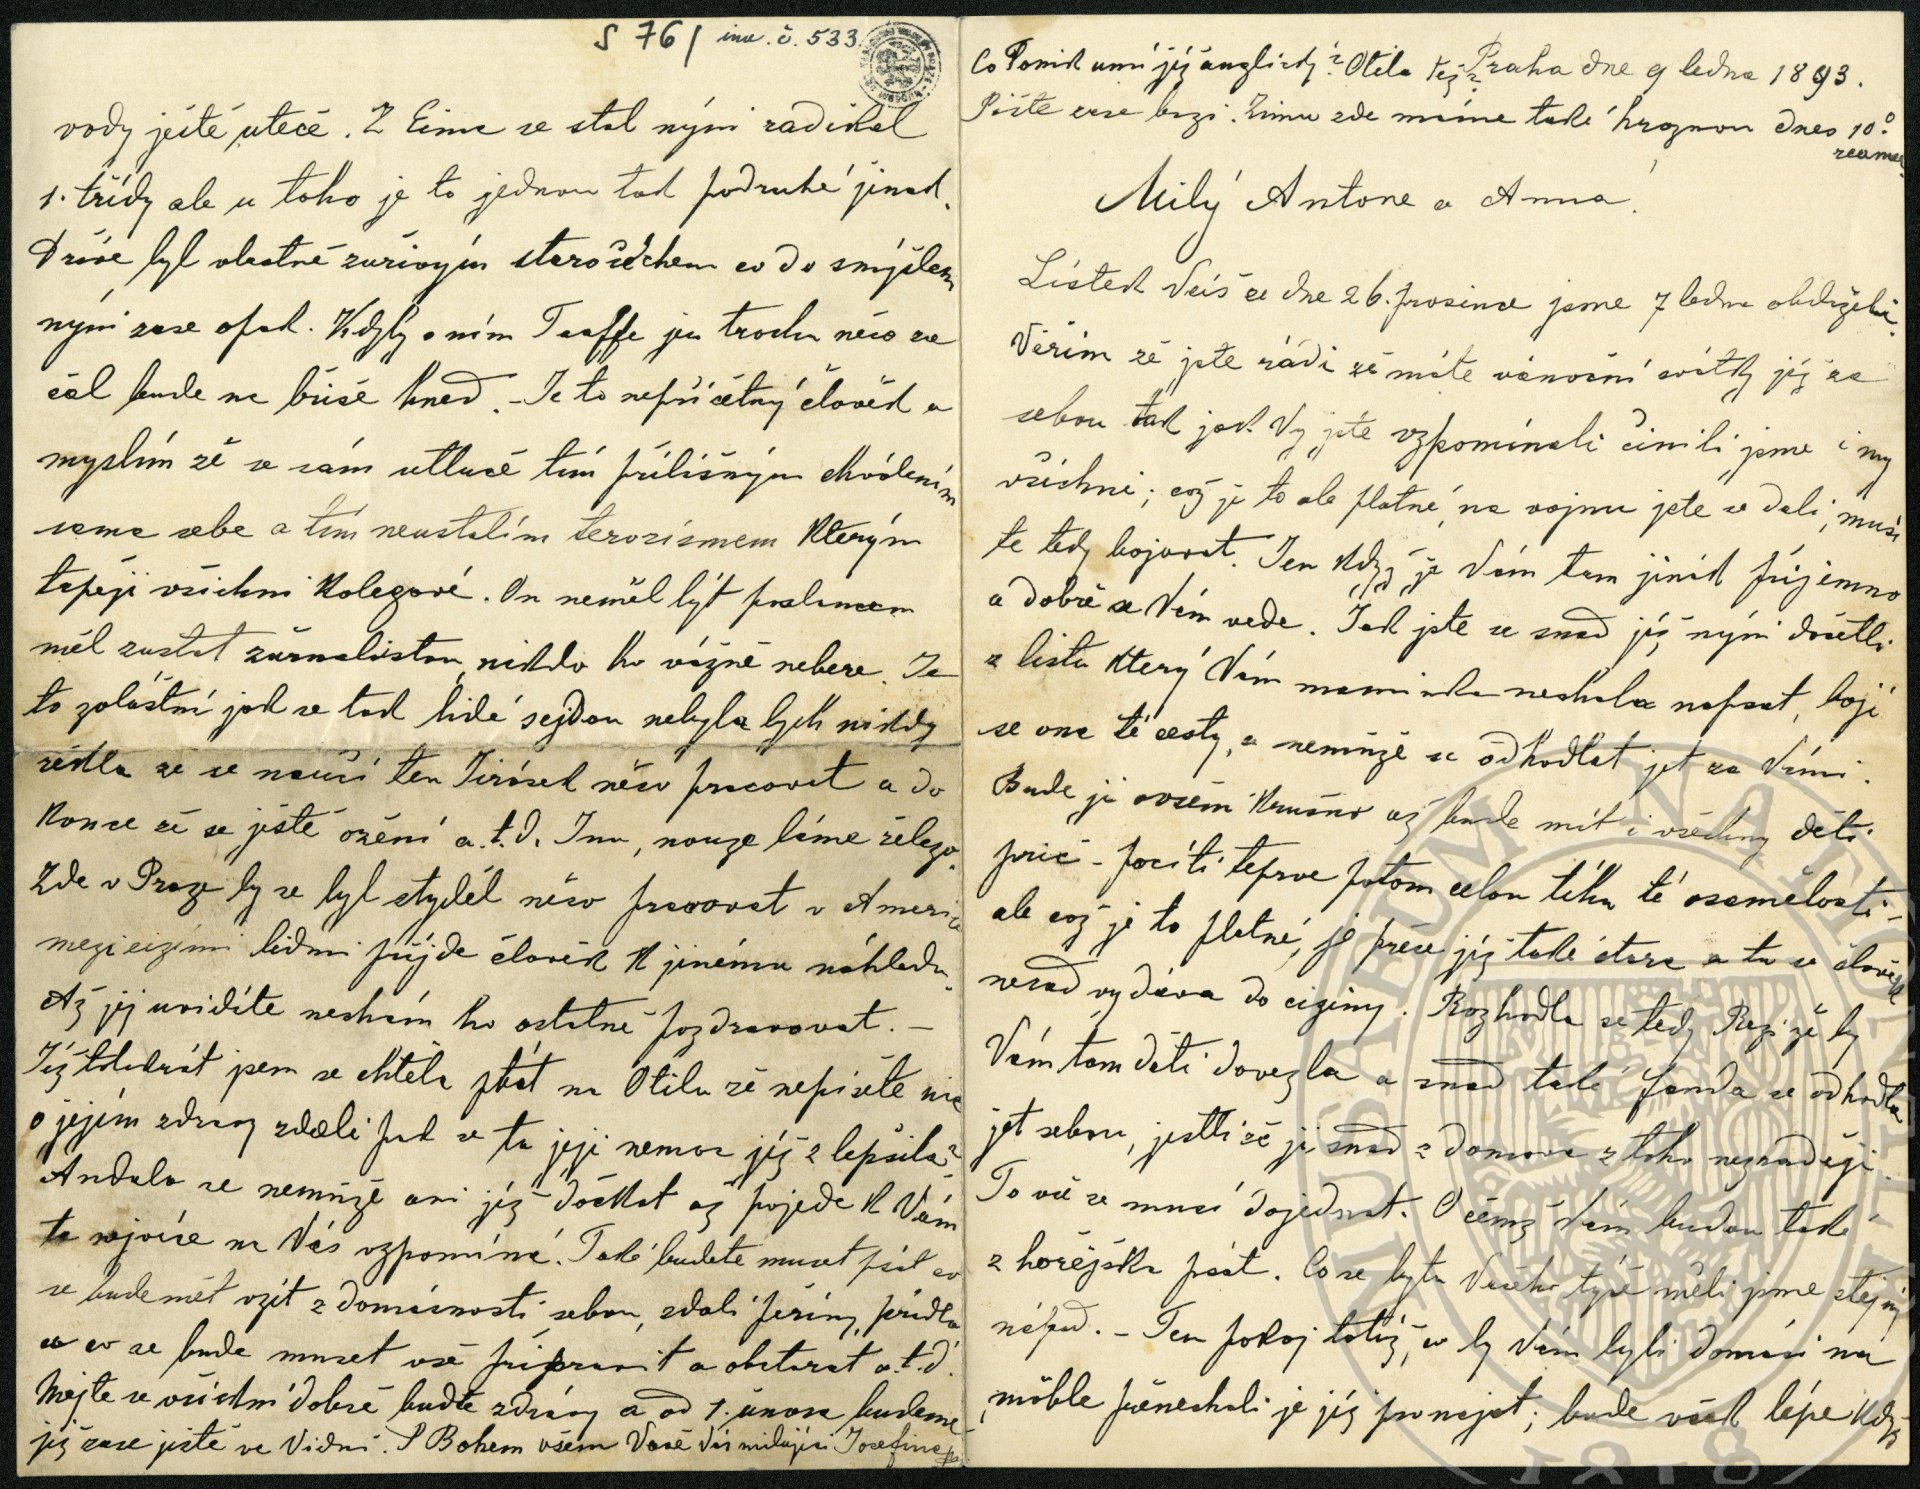 S 76/ inv. č. 533
Co Toník umí již anglicky? Otila též? Praha dne 9 ledna 1893.
Pište zase brzi. Zimu zde máme také hroznou dnes 10°
reamur
Milý Antone a Anna!
Lístek Váš ze dne 26. prosince jsme 7 ledna obdrželi.
Věřím že jste rádi že máte vánoční svátky již za
sebou tak jak Vy jste vzpomínali činili jsme i my
všichni; což je to ale platné, na vojnu jste se dali, musí
te tedy bojovat. Jen když je Vám tam jinak příjemno
a dobře se Vám vede. Jak jste se snad již nyní dočetli
z listu který Vám maminka nechala napsat, bojí
se ona té cesty, a nemůže se odhodlat jet za Vámi.
Bude jí ovšem krušno až bude mít i všechny děti
prič - pocítí teprve potom celou tíhu té osamělosti -
ale což je to platné, je přece již také stara a tu se člověk
nerad vydáva do ciziny. Rozhodla se tedy Rezi že by
Vám tam děti dovezla a snad také Fanda se odhodla
jet sebou, jestliže jí snad z domova z toho nezradějí.
To vše se musí dojednat. O čemž Vám budou také
z hořejška psát. Co se bytu Vašeho týče měli jsme stejný
nápad. - Ten pokoj totiž, co by Vám byli domácí na
möble přenechali je již pronajat; bude však lépe když
vody ještě uteče. Z Eima se stal nýni radikal
1. třídy ale u toho je to jednou tak podruhé jinak.
Dříve byl vlastně zuřivým staročechem co do smýšlení
nýni zase opak. Když o ním Taaffe jen trochu něco za
čal bude na bříše hned. - Je to nepříčetný človek a
myslím že se sám utluče tím přílišným chválením
sama sebe a tím neustalím terorismem kterým
tepéjí všichni kolegové. On neměl být poslancem
měl zustat žurnalistou, nikdo ho vážně nebere. Je
to zvláštní jak se tak lidé sejdou nebyla bych nikdy
řekla že se naučí ten Jirásek něco pracovat a do
konce že se ještě ožení a.t.d. Inu, nouze láme železo.
Zde v Praze by se byl styděl něco pracovat v Americe
mezi cizími lidmi přijde človek k jinému náhledu.
Až jej uvidíte nechám ho ostatně pozdravovat. -
Již tolikrát jsem se chtěla ptát na Otilu že nepišete nic
o jejím zdraví zdali pak se ta její nemoc již z lepšila?
Andula se nemůže ani již dočkat až pojede k Vám
ta nejvíce na Vás vzpomíná. Také budete muset psát co
se bude mět vzít z domácnosti sebou, zdali peřiny, prádlo
a co se bude muset vše připravit a obstarat a.t.d.
Mějte se všichni dobře buďte zdrávy a od 1. února budeme
již zase jistě ve Vídni. S Bohem všem Vaše Vás milující Josefina